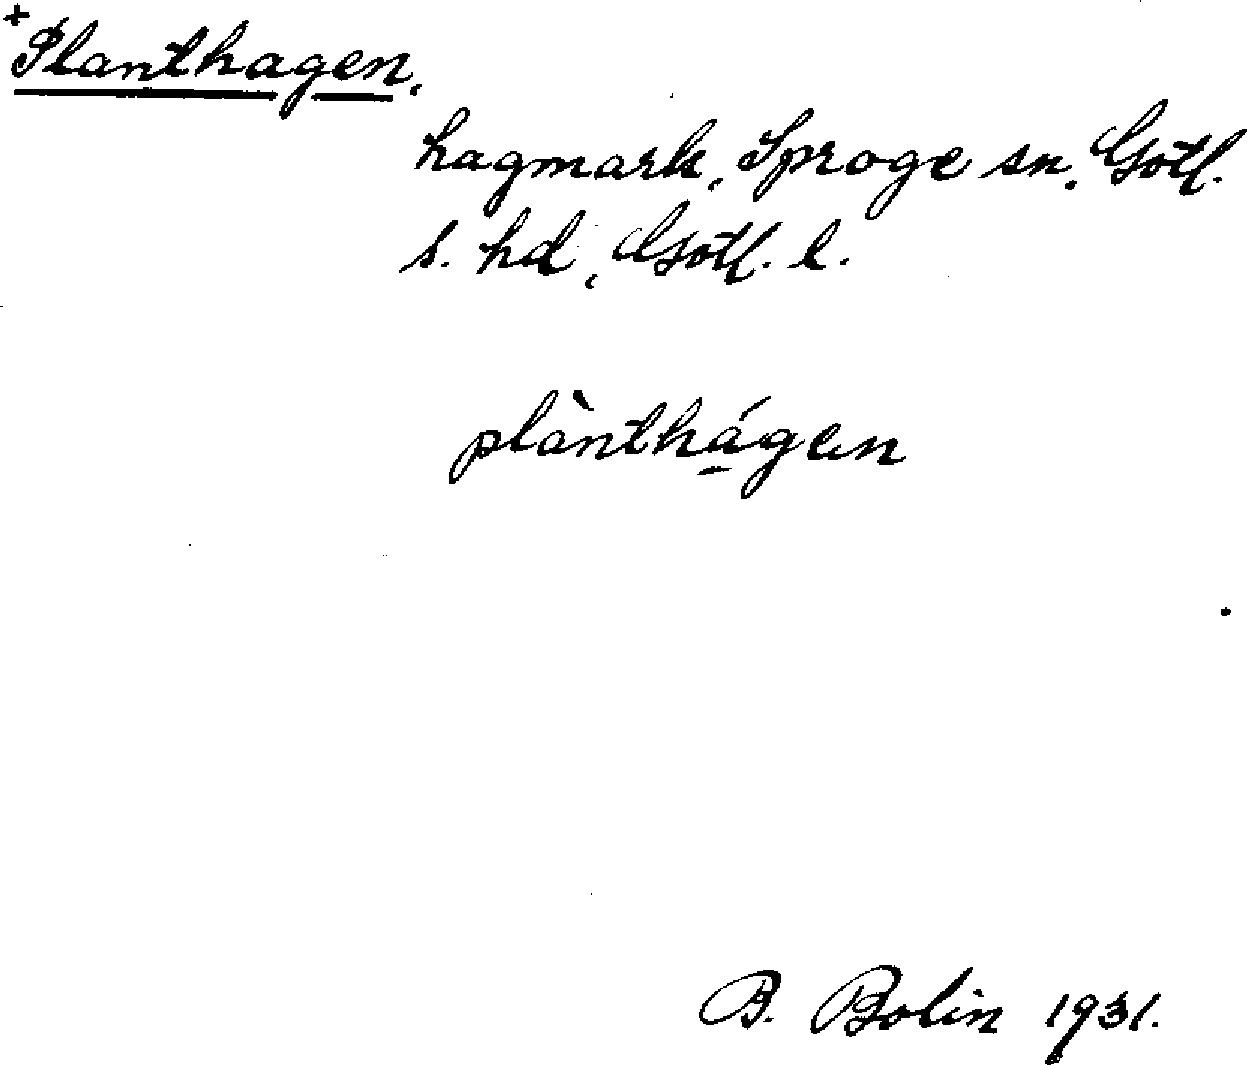 +Planthagen,
hagmark, Sproge sn, Gotl.
s. hd, Gotl. l.
plànthágen
B. Bolin 1931.